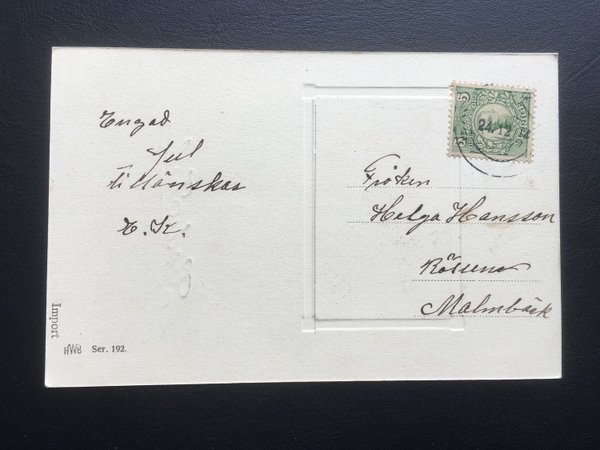 En god
Jul
tillönskas
E. K.
Fröken
Helga Hansson
Rössena
Malmbäck
5
24.12.12
Import
HWB Ser. 192.